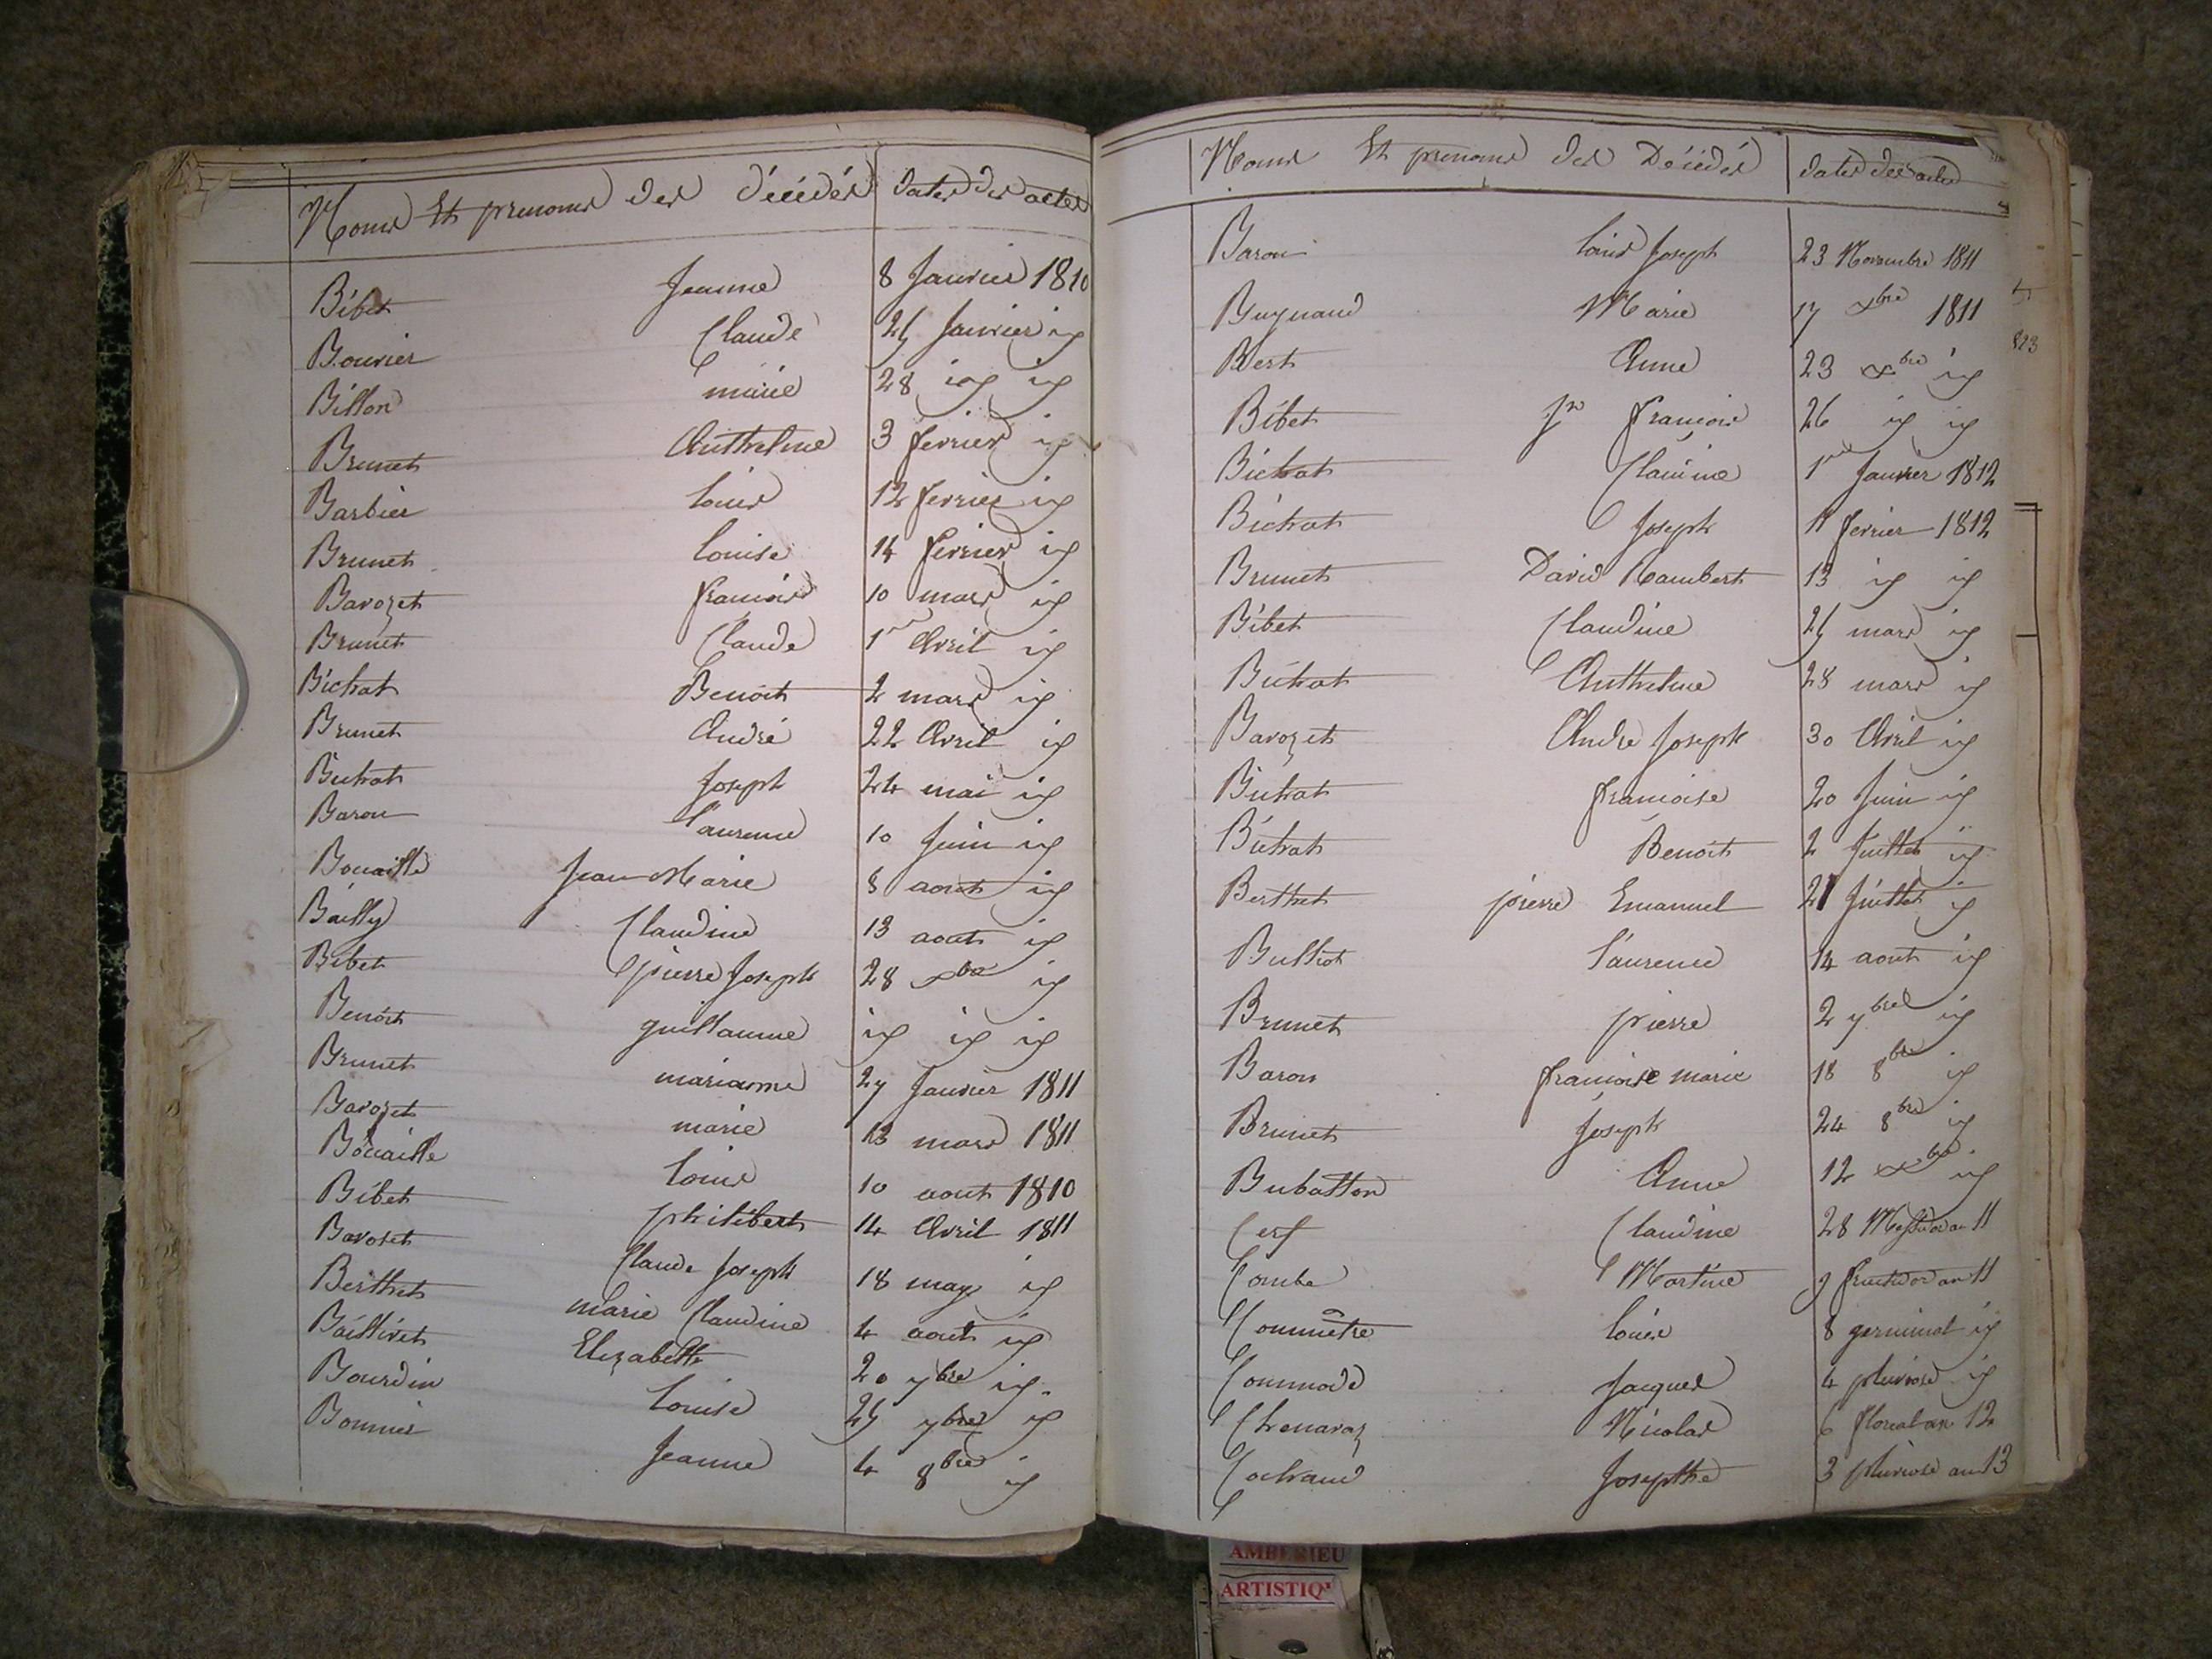 Noms Et prenoms des décédés dates des actes
Bibet Jeanne 8 Janvier 1810
Bouvier Claude 25 Janvier id
Billon marie 28 id id
Brunet Anthelme 3 fevrier id
Barbier louis 12 fevrier id
Brunet louise 14 fevrier id
Bavozet francois 10 mars id
Brunet Claude 1er Avril id
Bichat Benoit 2 mars id
Brunet André 22 Avril id
Bichat Joseph 24 mai id
Baron laurence 10 Juin id
Bouaille Jean Marie 8 aout id
Bailly Claudine 13 aout id
Bibet pierre Joseph 28 xbre id
Benoit guillaume id id id
Brunet marianne 27 Janvier 1811
Bavozet marie 13 mars 1811
Bouaille louis 10 aout 1810
Bibet philibert 14 Avril 1811
Bavozet Claude Joseph 18 may id
Berthet marie Claudine 4 aout id
Baillivet Elizabette 20 7bre id.
Bourdin louise 25 7bre id
Bonnier Jeanne 4 8bre id
Noms Et prenoms des Décédés dates des actes
Baron louis Joseph 23 Novembre 1811
Buynand Marie 17 xbre 1811
Bert Anne 23 xbre id
Bibet Jn francois 26 id id
Bichat Claudine 1er Janvier 1812
Bichat Joseph 11 fevrier 1812
Brunet David Rambert 13 id id
Bibet Claudine 25 mars id
Bichat Anthelme 28 mars id
Bavozet Andre Joseph 30 Avril id
Bichat francoise 20 Juin id
Bichat Benoit 2 Juillet id
Berthet pierre Emanuel 21 Juillet id
Bulliot laurence 14 aout id
Brunet pierre 2 7bre id
Baron francoise marie 18 8bre id
Brunet Joseph 24 8bre id
Bubatton Anne 12 xbre id
Cerf Claudine 28 Messidor an 11
Combe Martine 9 fructidor an 11
Commetre louise 8 germinal id
Commode Jacques 4 pluviose id
Chenavaz Nicolas 6 floreal an 12
Cochaud Josephte 3 pluviose an 13
AMBERIEU
ARTISTIQ